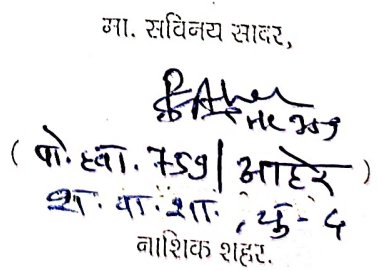 मा. सविनय सादर,
HC 759
( पो. हवा. 759 | आहेर )
श. वा. शा. , यु - ८
नाशिक शहर.